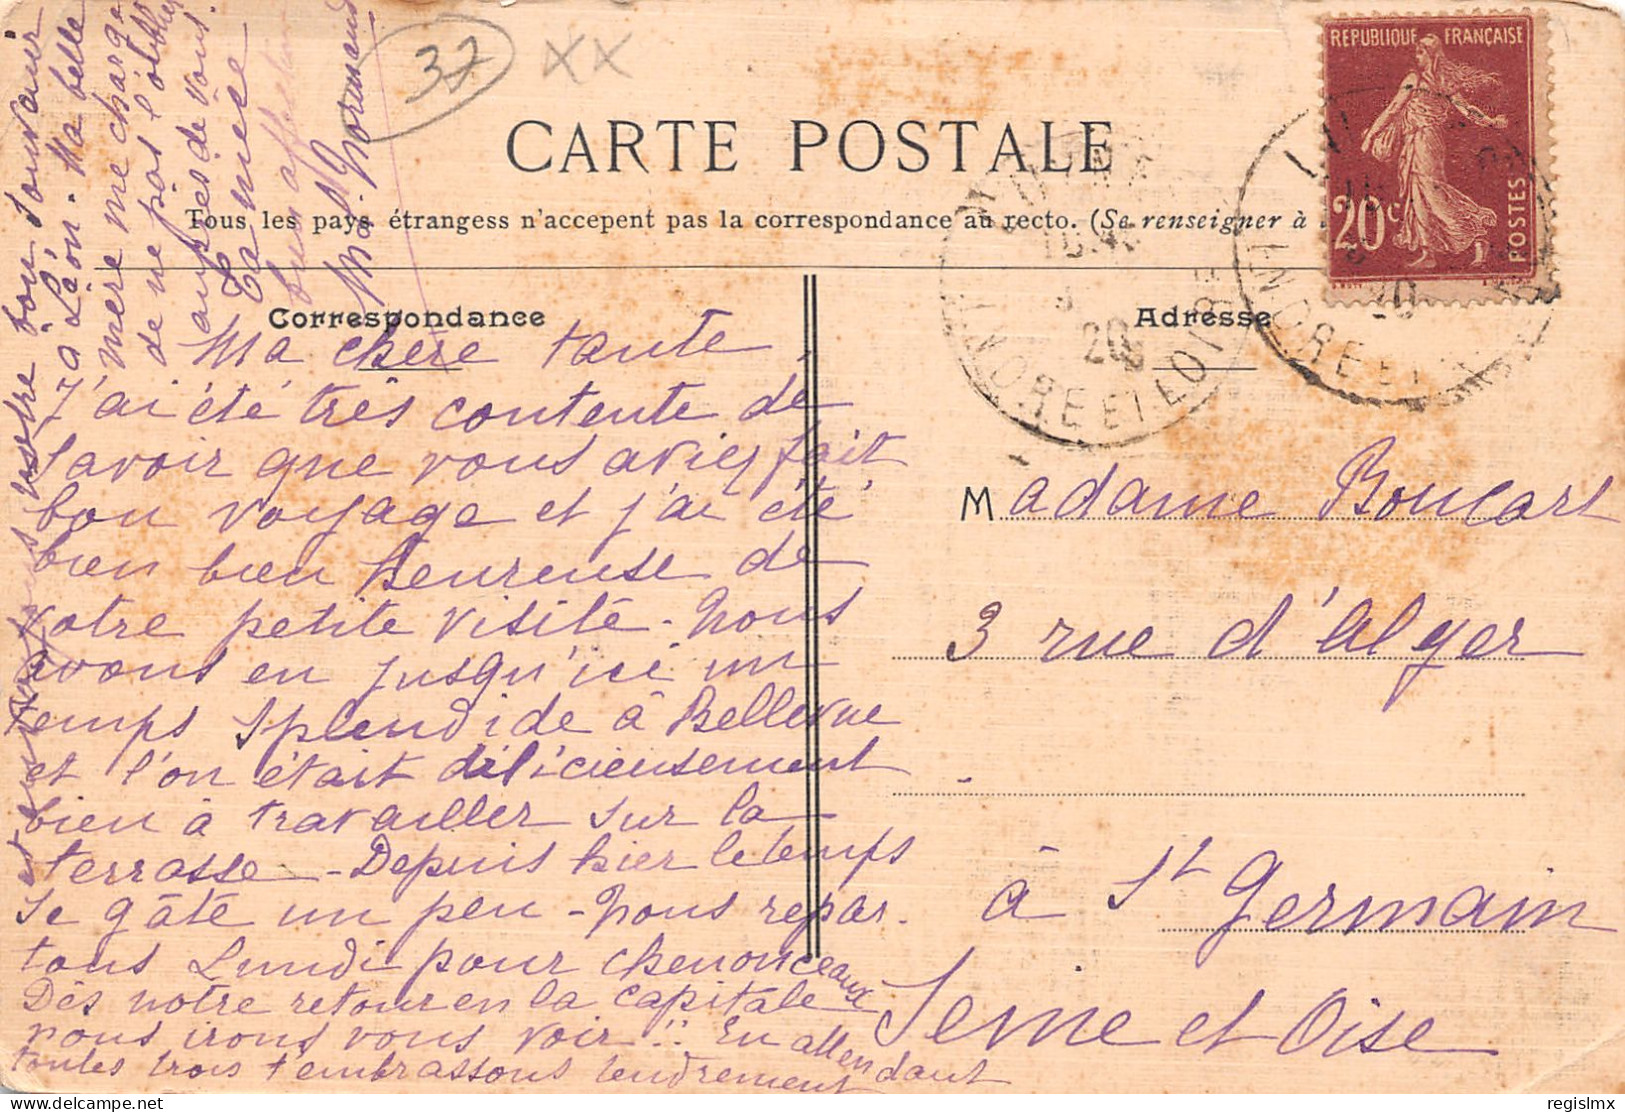 37
XX
CARTE POSTALE
Tous les pays étrangess n'accepent pas la correspondance au recto. (Se renseigner à
REPUBLIQUE FRANÇAISE
20c
POSTES
INDRE ET LOIRE
20
INDRE ET
20
Correspondance
Adresse
Ma chère tante,
J'ai été très contente de
savoir que vous aviez fait
bon voyage et j'ai été
bien bien heureuse de
votre petite visite - Nous
avons eu jusqu'ici un
temps splendide à Bellevue
et l'on était délicieusement
bien à travailler sur la
terrasse - Depuis hier le temps
se gâte un peu - Nous repar-
tons Lundi pour Chenonceaux
Dès notre retour en la capitale
nous irons vous voir!! En attendant
toutes trois t'embrassons tendrement
votre bon souvenir
à Léon. Ma belle
mère me charge
de ne pas l'oublier
auprès de vous.
Ta nièce
bien affect
Mad. Normand
Madame Boucart
3 rue d'Alger
à St Germain
Seine et Oise
regislmx